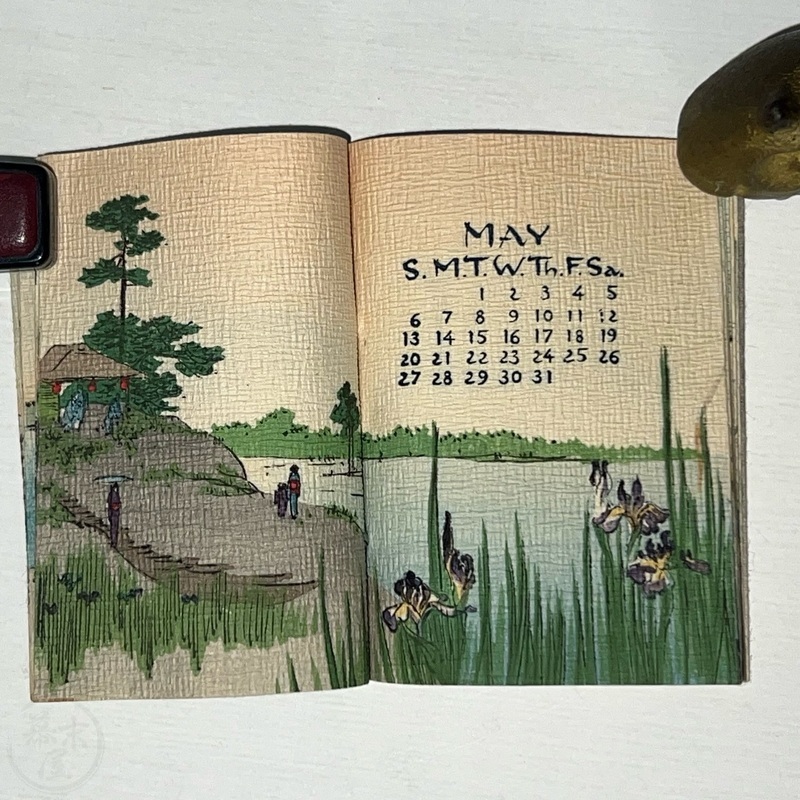 MAY
S. M. T. W. Th. F. Sa.
1 2 3 4 5
6 7 8 9 10 11 12
13 14 15 16 17 18 19
20 21 22 23 24 25 26
27 28 29 30 31